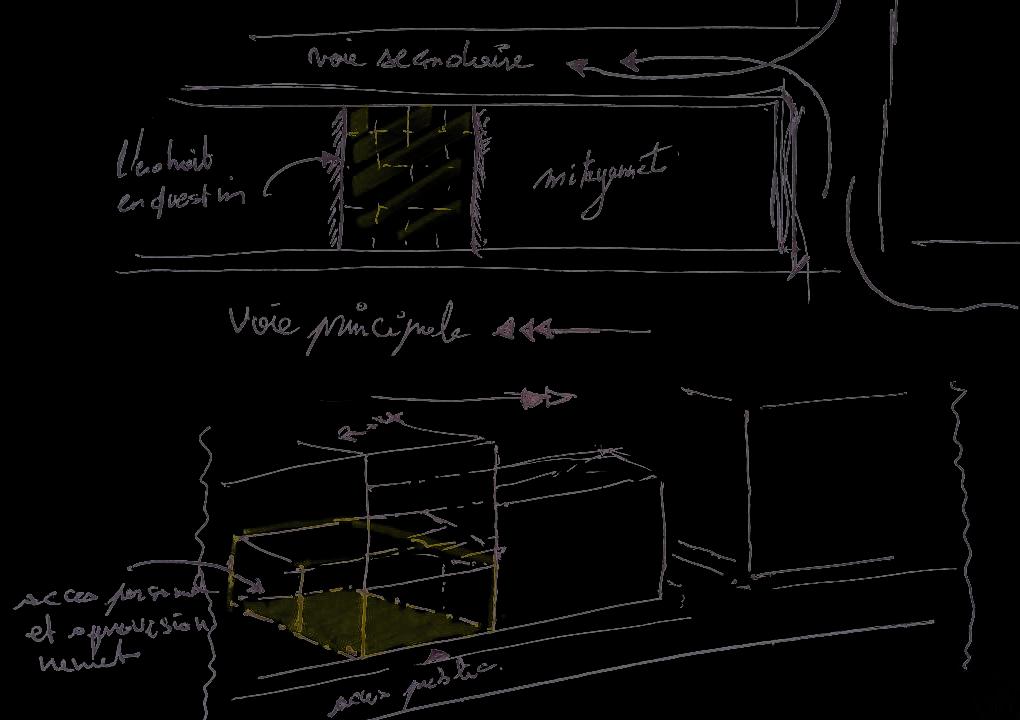 voie secondaire
l'endroit
en question
mitoyenneté
voie principale
acces personnel
et approvision
nement
acces public.